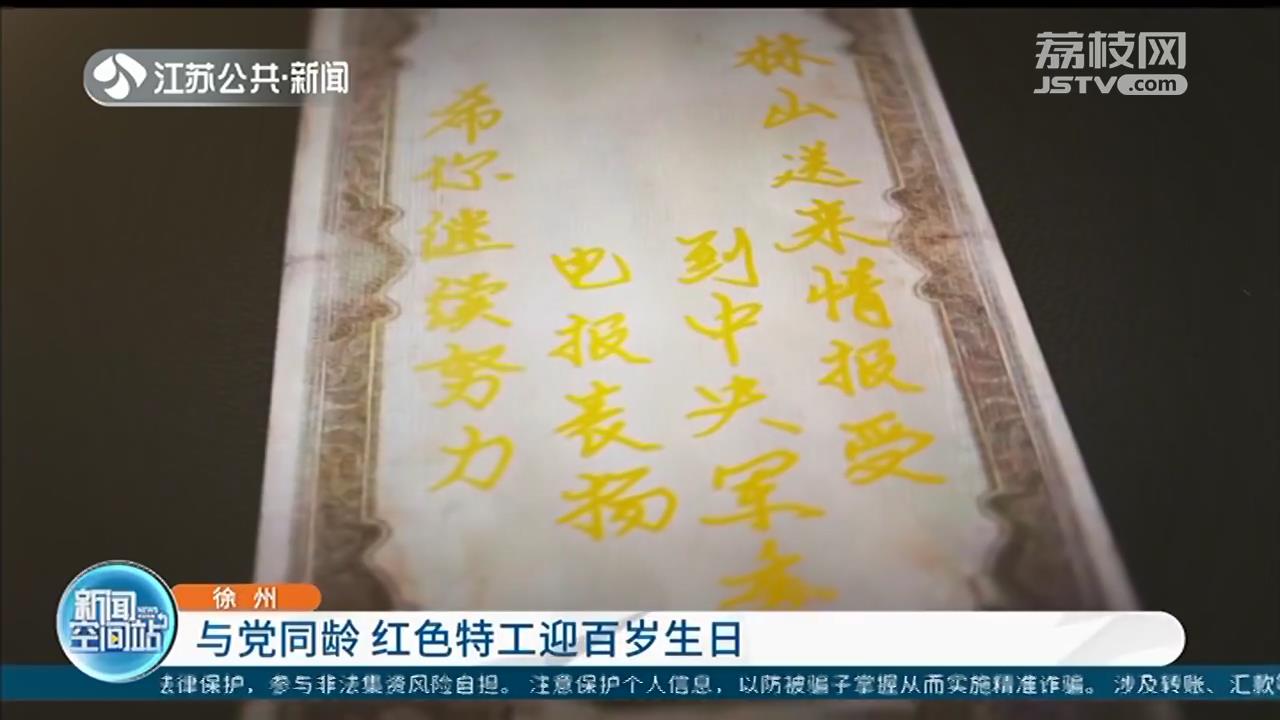 江苏公共·新闻
荔枝网
JSTV.com
林山送来情报受
到中央军委
电报表扬
希你继续努力
徐州
新闻
NEWS
空间站
与党同龄 红色特工迎百岁生日
法律保护，参与非法集资风险自担。 注意保护个人信息，以防被骗子掌握从而实施精准诈骗。 涉及转账、汇款